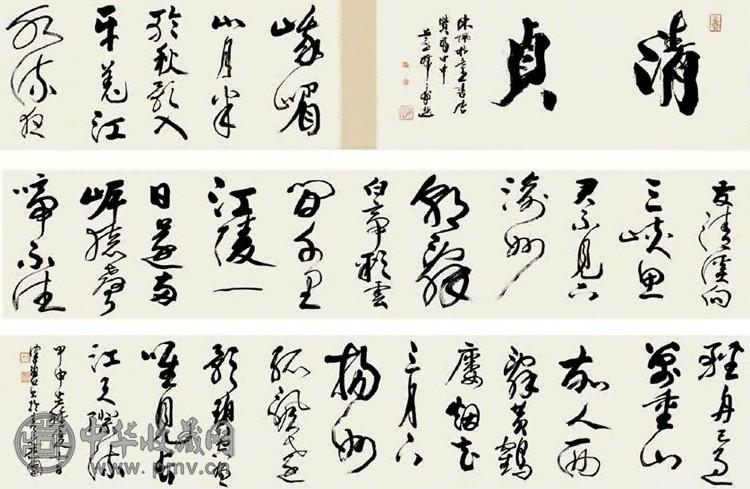 清貞
峨嵋
山月半
輪秋影入
平羌江
水流夜
發清溪向
三峽思
君不見下
渝州
朝辭
白帝彩雲
間千里
江陵一
日還兩
岸猿聲
啼不住
輕舟已過
萬重山
故人西
辭黃鶴
樓烟花
三月下
揚州
孤帆遠
影碧空盡
唯見長
江天際流
甲申
中华收藏网
www.pmv.cn